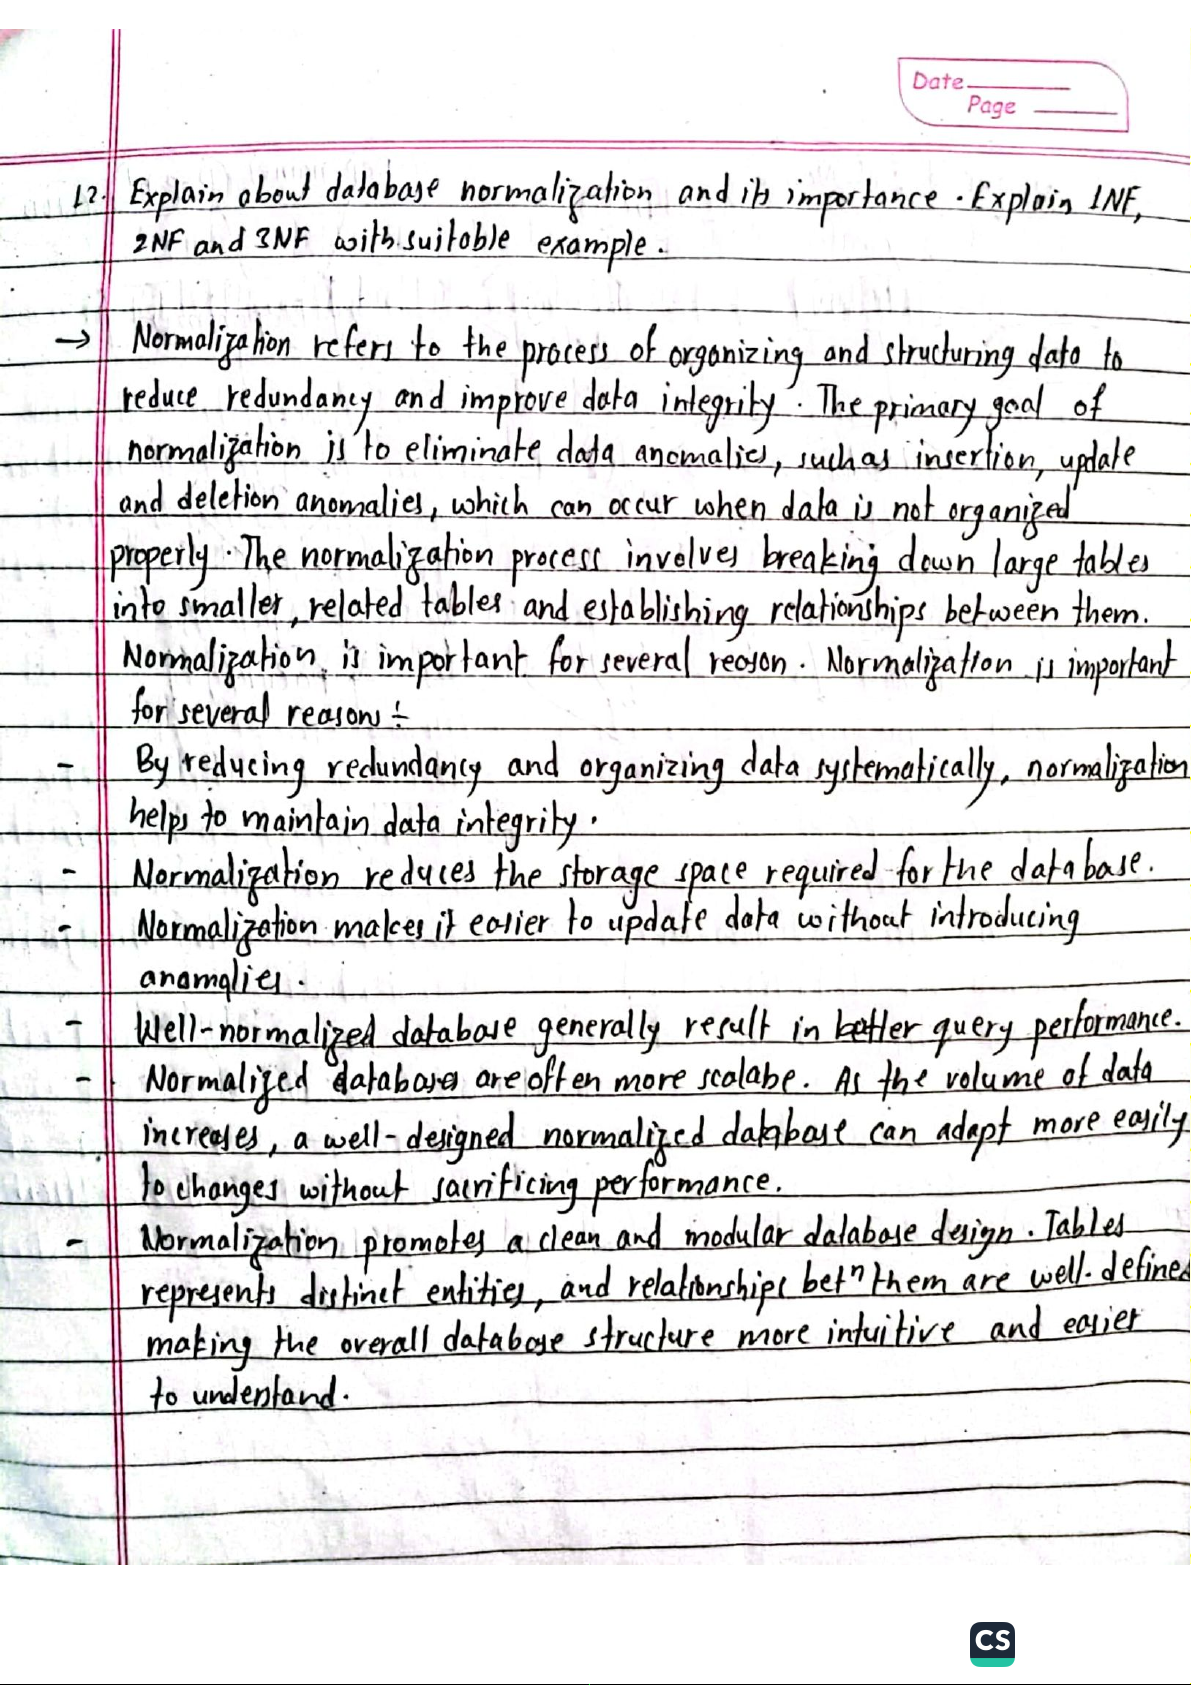 Date
Page
12. Explain about database normalization and its importance. Explain 1NF,
2NF and 3NF with suitable example.
→ Normalization refers to the process of organizing and structuring data to
reduce redundancy and improve data integrity. The primary goal of
normalization is to eliminate data anomalies, such as insertion, update
and deletion anomalies, which can occur when data is not organized
properly. The normalization process involves breaking down large tables
into smaller, related tables and establishing relationships between them.
Normalization is important for several reason. Normalization is important
for several reasons :-
- By reducing redundancy and organizing data systematically, normalization
helps to maintain data integrity.
- Normalization reduces the storage space required for the database.
- Normalization makes it easier to update data without introducing
anomalies.
- Well-normalized database generally result in better query performance.
- Normalized databases are often more scalabe. As the volume of data
increases, a well-designed normalized database can adapt more easily
to changes without sacrificing performance.
- Normalization promotes a clean and modular database design. Tables
represents distinct entities, and relationships betⁿ them are well-defined
making the overall database structure more intuitive and easier
to understand.
CS